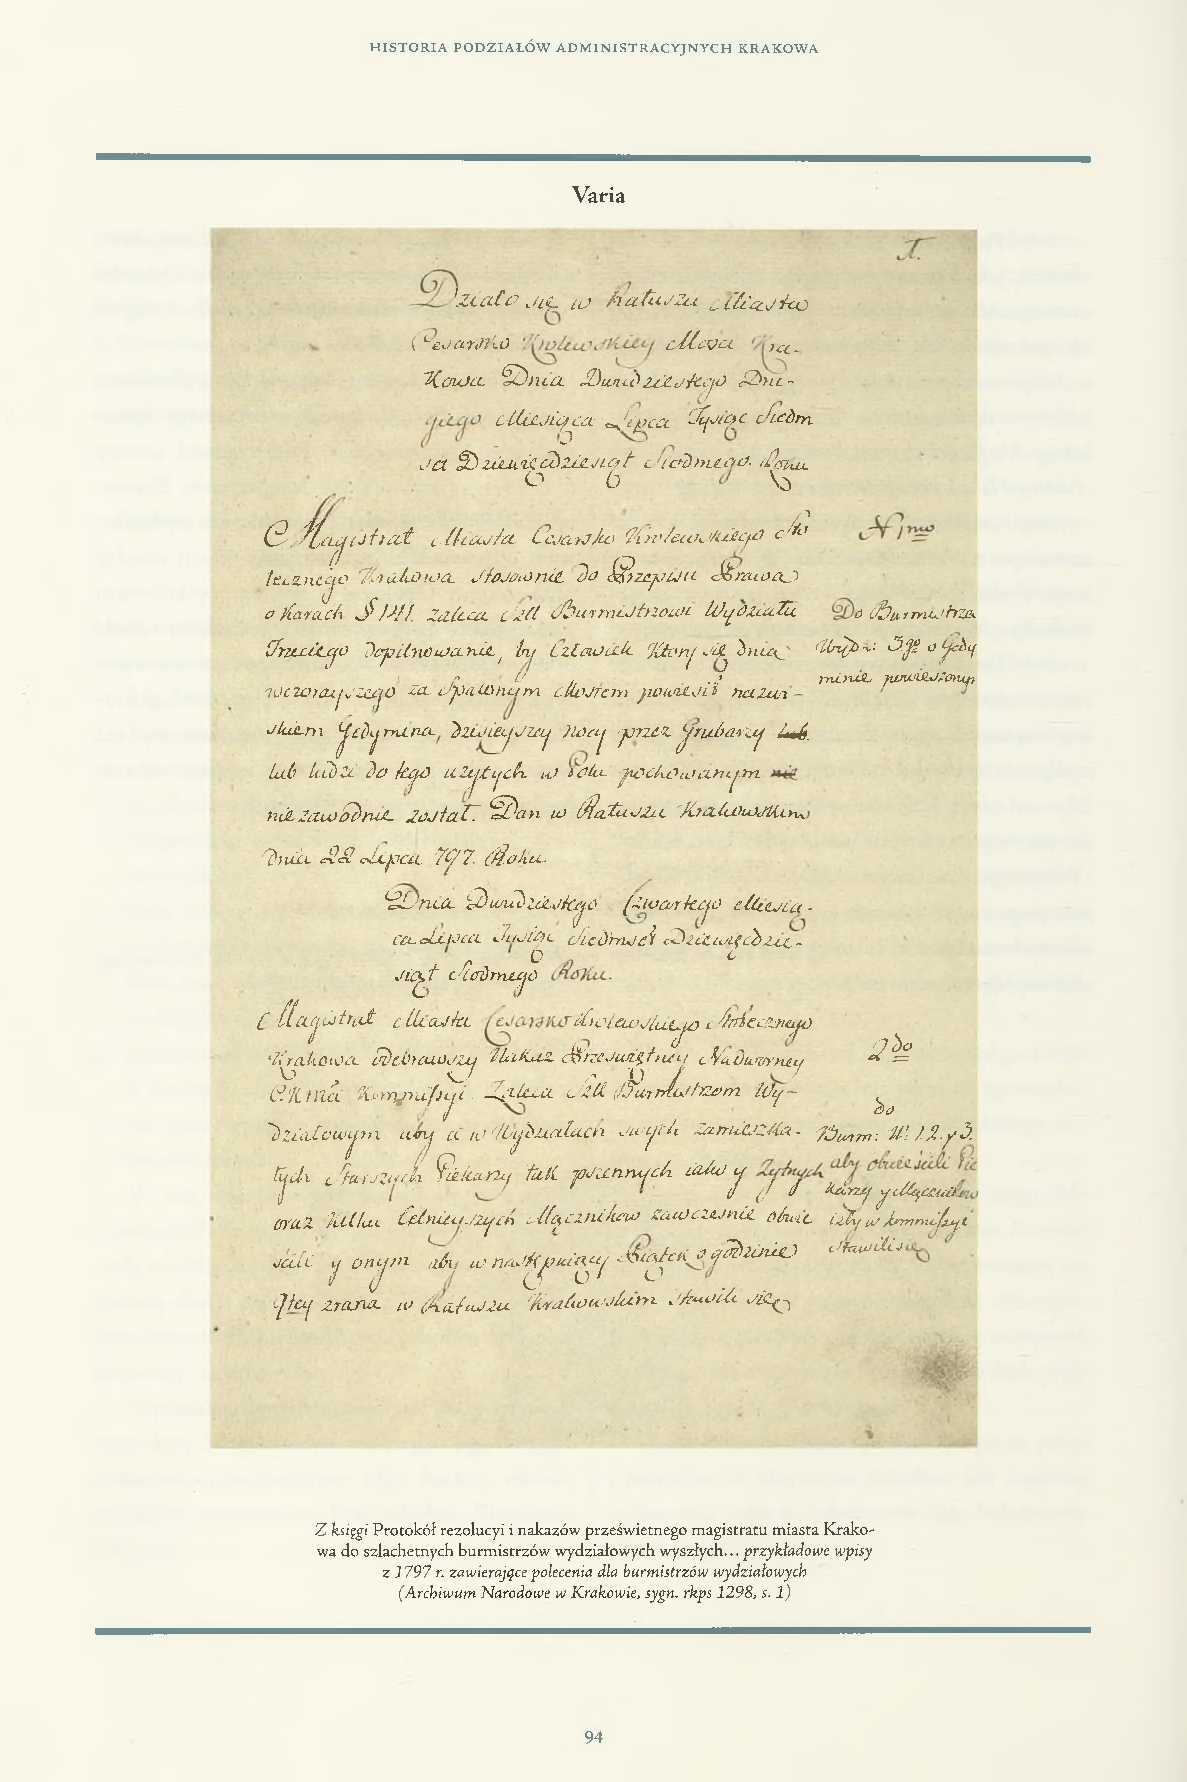 HISTORIA PODZIAŁÓW ADMINISTRACYJNYCH KRAKOWA
Varia
1.
Działo się w Ratuszu Miasta
Cesarsko Krolewskiey Mości Kra-
kowa Dnia Dwudziestego Dru-
giego Miesiąca Lipca Tysiąc Siedm
set Dziewięćdziesiąt Siodmego Roku
Magistrat Miasta Cesarsko Krolewskiego Sto
łecznego Krakowa stosownie do Przepisu Prawa
o Karach § 141. zaleca Szll Burmistrzowi Wydziału
Trzeciego dopilnowanie, by Człowiek Ktory się dnia
wczorayszego za Spalonym Mostem powiesił nazwi-
skiem Gedymina, dzisieyszey nocy przez Grubarzy lub
lub ludzi do tego użytych w Polu pochowanym nie
niezawodnie został. Dan w Ratuszu Krakowskim
Dnia 22 Lipca 797. Roku.
N 1mo
Do Burmistrza
Wydz: 3go o Gedy
minie powieszonym
Dnia Dwudziestego Czwartego Miesią-
ca Lipca Tysiąc Siedmset Dziewięćdzie-
siąt Siodmego Roku.
Magistrat Miasta Cesarsko Krolewskiego Stołecznego
Krakowa odebrawszy Nakaz Prześwietney Nadworney
C. K. Kommissyi Zaleca Szll Burmistrzom Wy-
działowym aby ci w Wydziałach swych zamieszka-
łych Starszych Piekarzy tak pszennych iako y Żytnych
oraz Kilku Celnieyszych Mącznikow zawczesnie obwie
ścili y onym aby w następuiący Piątek o godzinie
9tey zrana w Ratuszu Krakowskim stawili się
2do
do
Burm: W: 1. 2. y 3.
aby obwieścili Pie
karzy y Mącznikow
iżby w kommissyi
stawili się
Z księgi Protokół rezolucyi i nakazów prześwietnego magistratu miasta Krako-
wa do szlachetnych burmistrzów wydziałowych wyszłych... przykładowe wpisy
z 1797 r. zawierające polecenia dla burmistrzów wydziałowych
(Archiwum Narodowe w Krakowie, sygn. rkps 1298, s. 1)
94